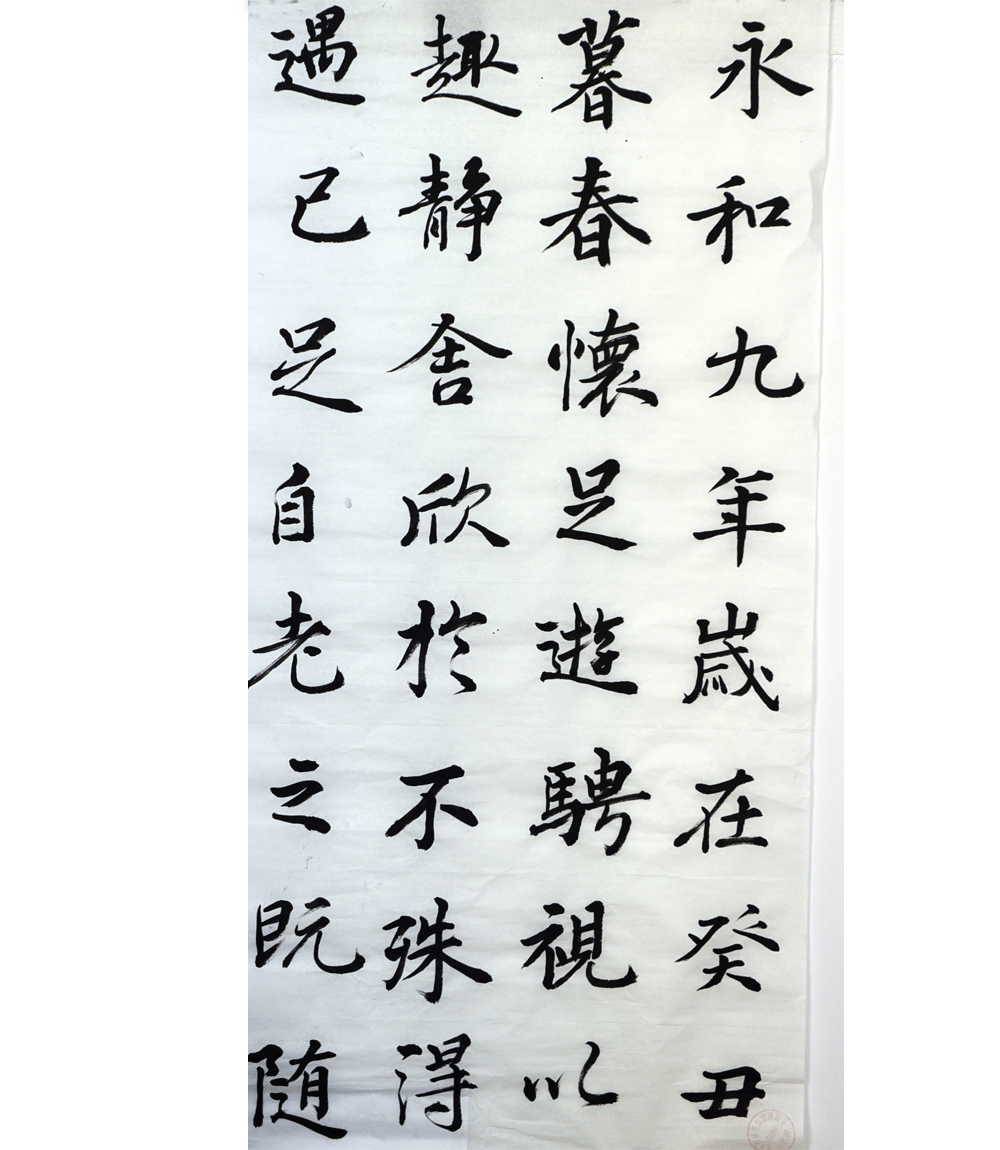 永和九年歲在癸丑
暮春懷足遊騁視以
趣静舍欣於不殊得
遇已足自老之既随